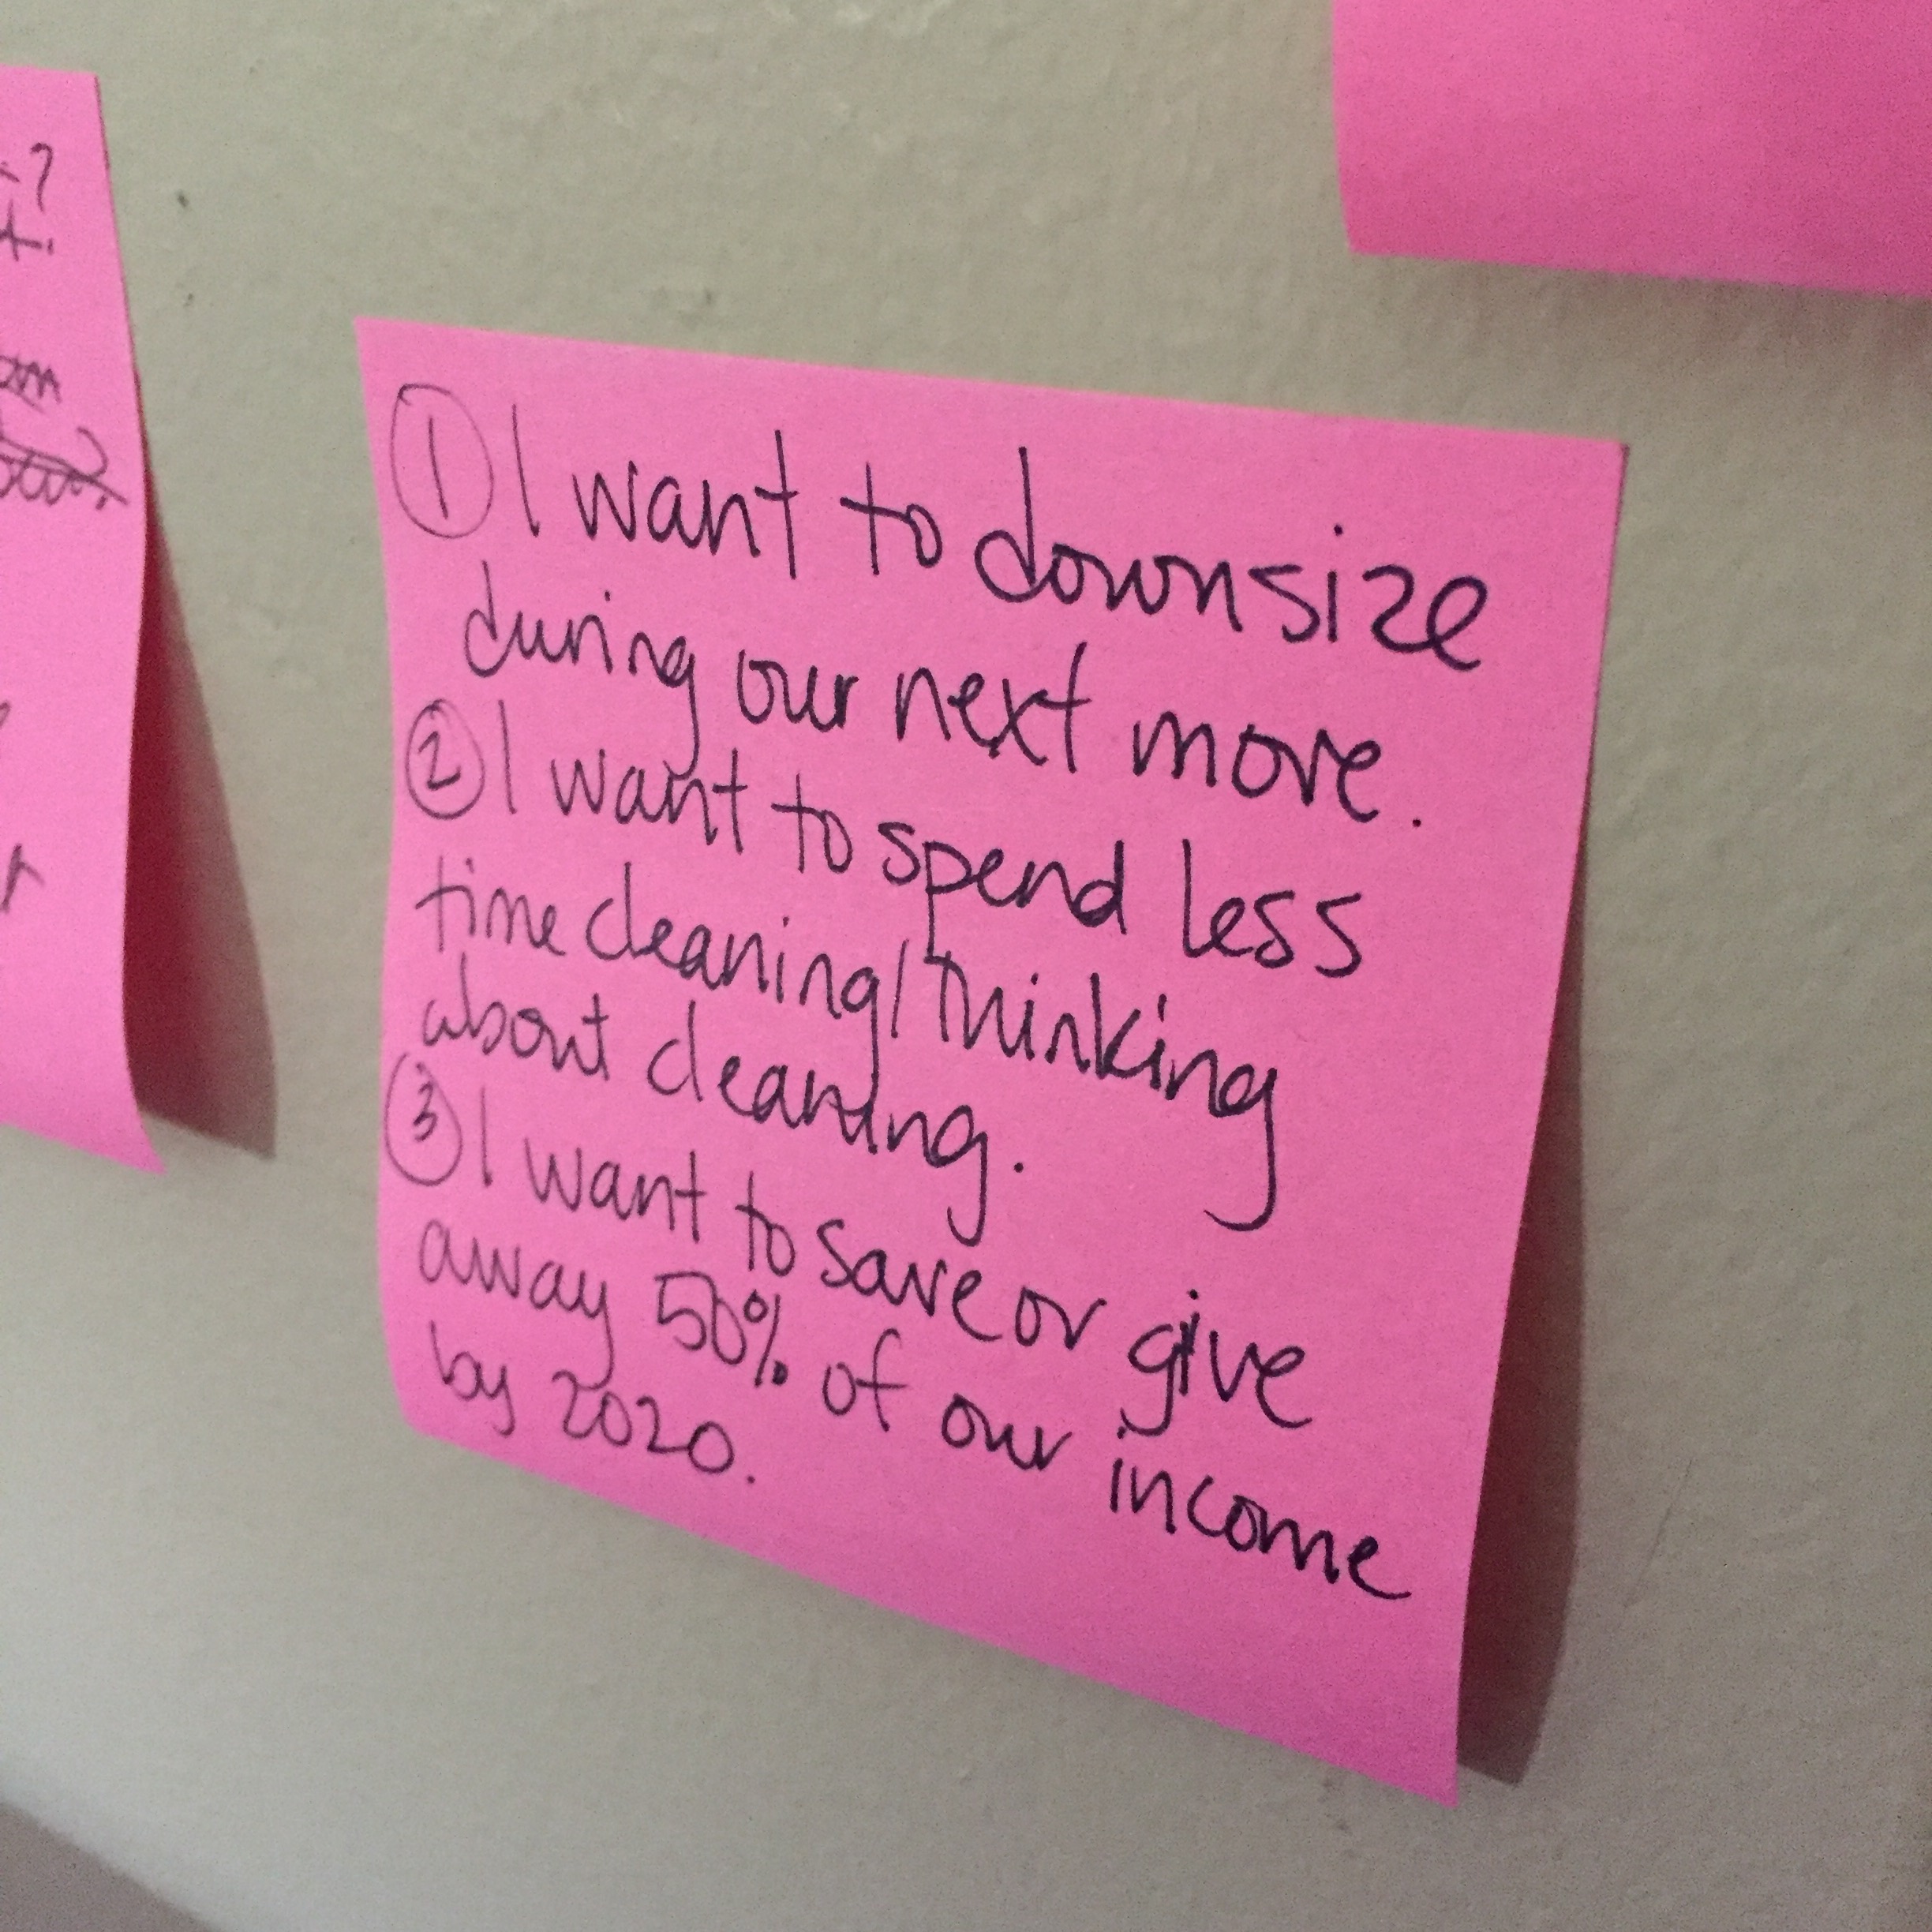 ① I want to downsize
during our next move.
② I want to spend less
time cleaning/thinking
about cleaning.
③ I want to save or give
away 50% of our income
by 2020.